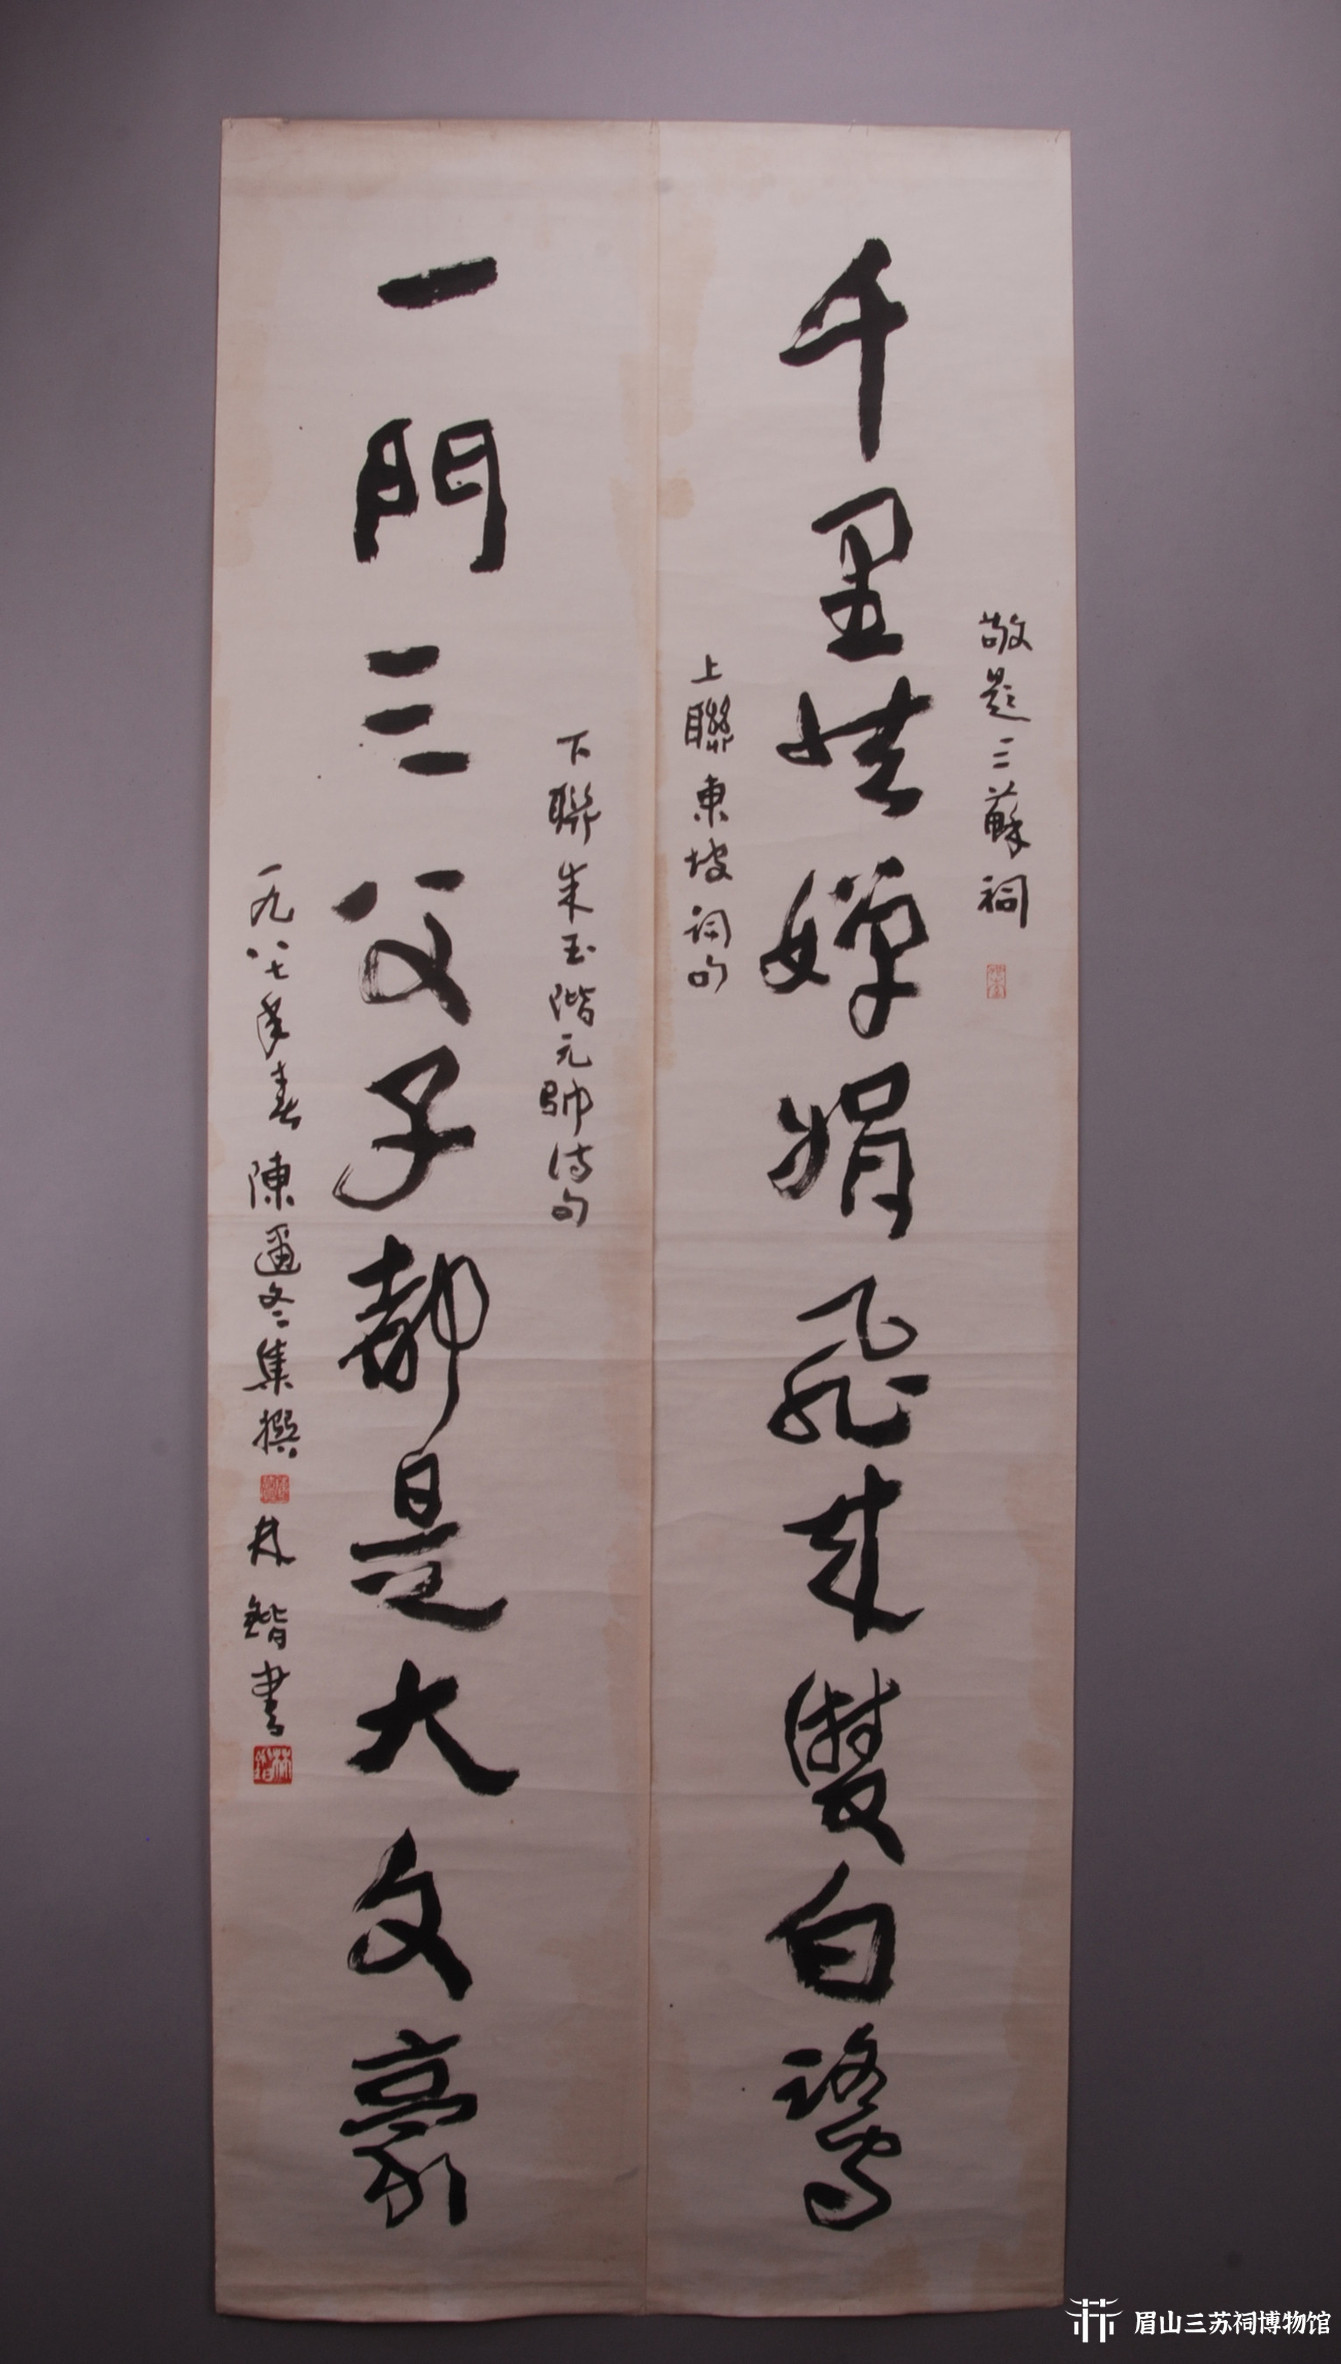 敬題三蘇祠
千里共嬋娟飛來雙白鷺
上聯東坡詞句
下聯朱玉階元帥詩句
一門三父子都是大文豪
一九八七年春陳邇冬集撰
林鍇書
眉山三苏祠博物馆